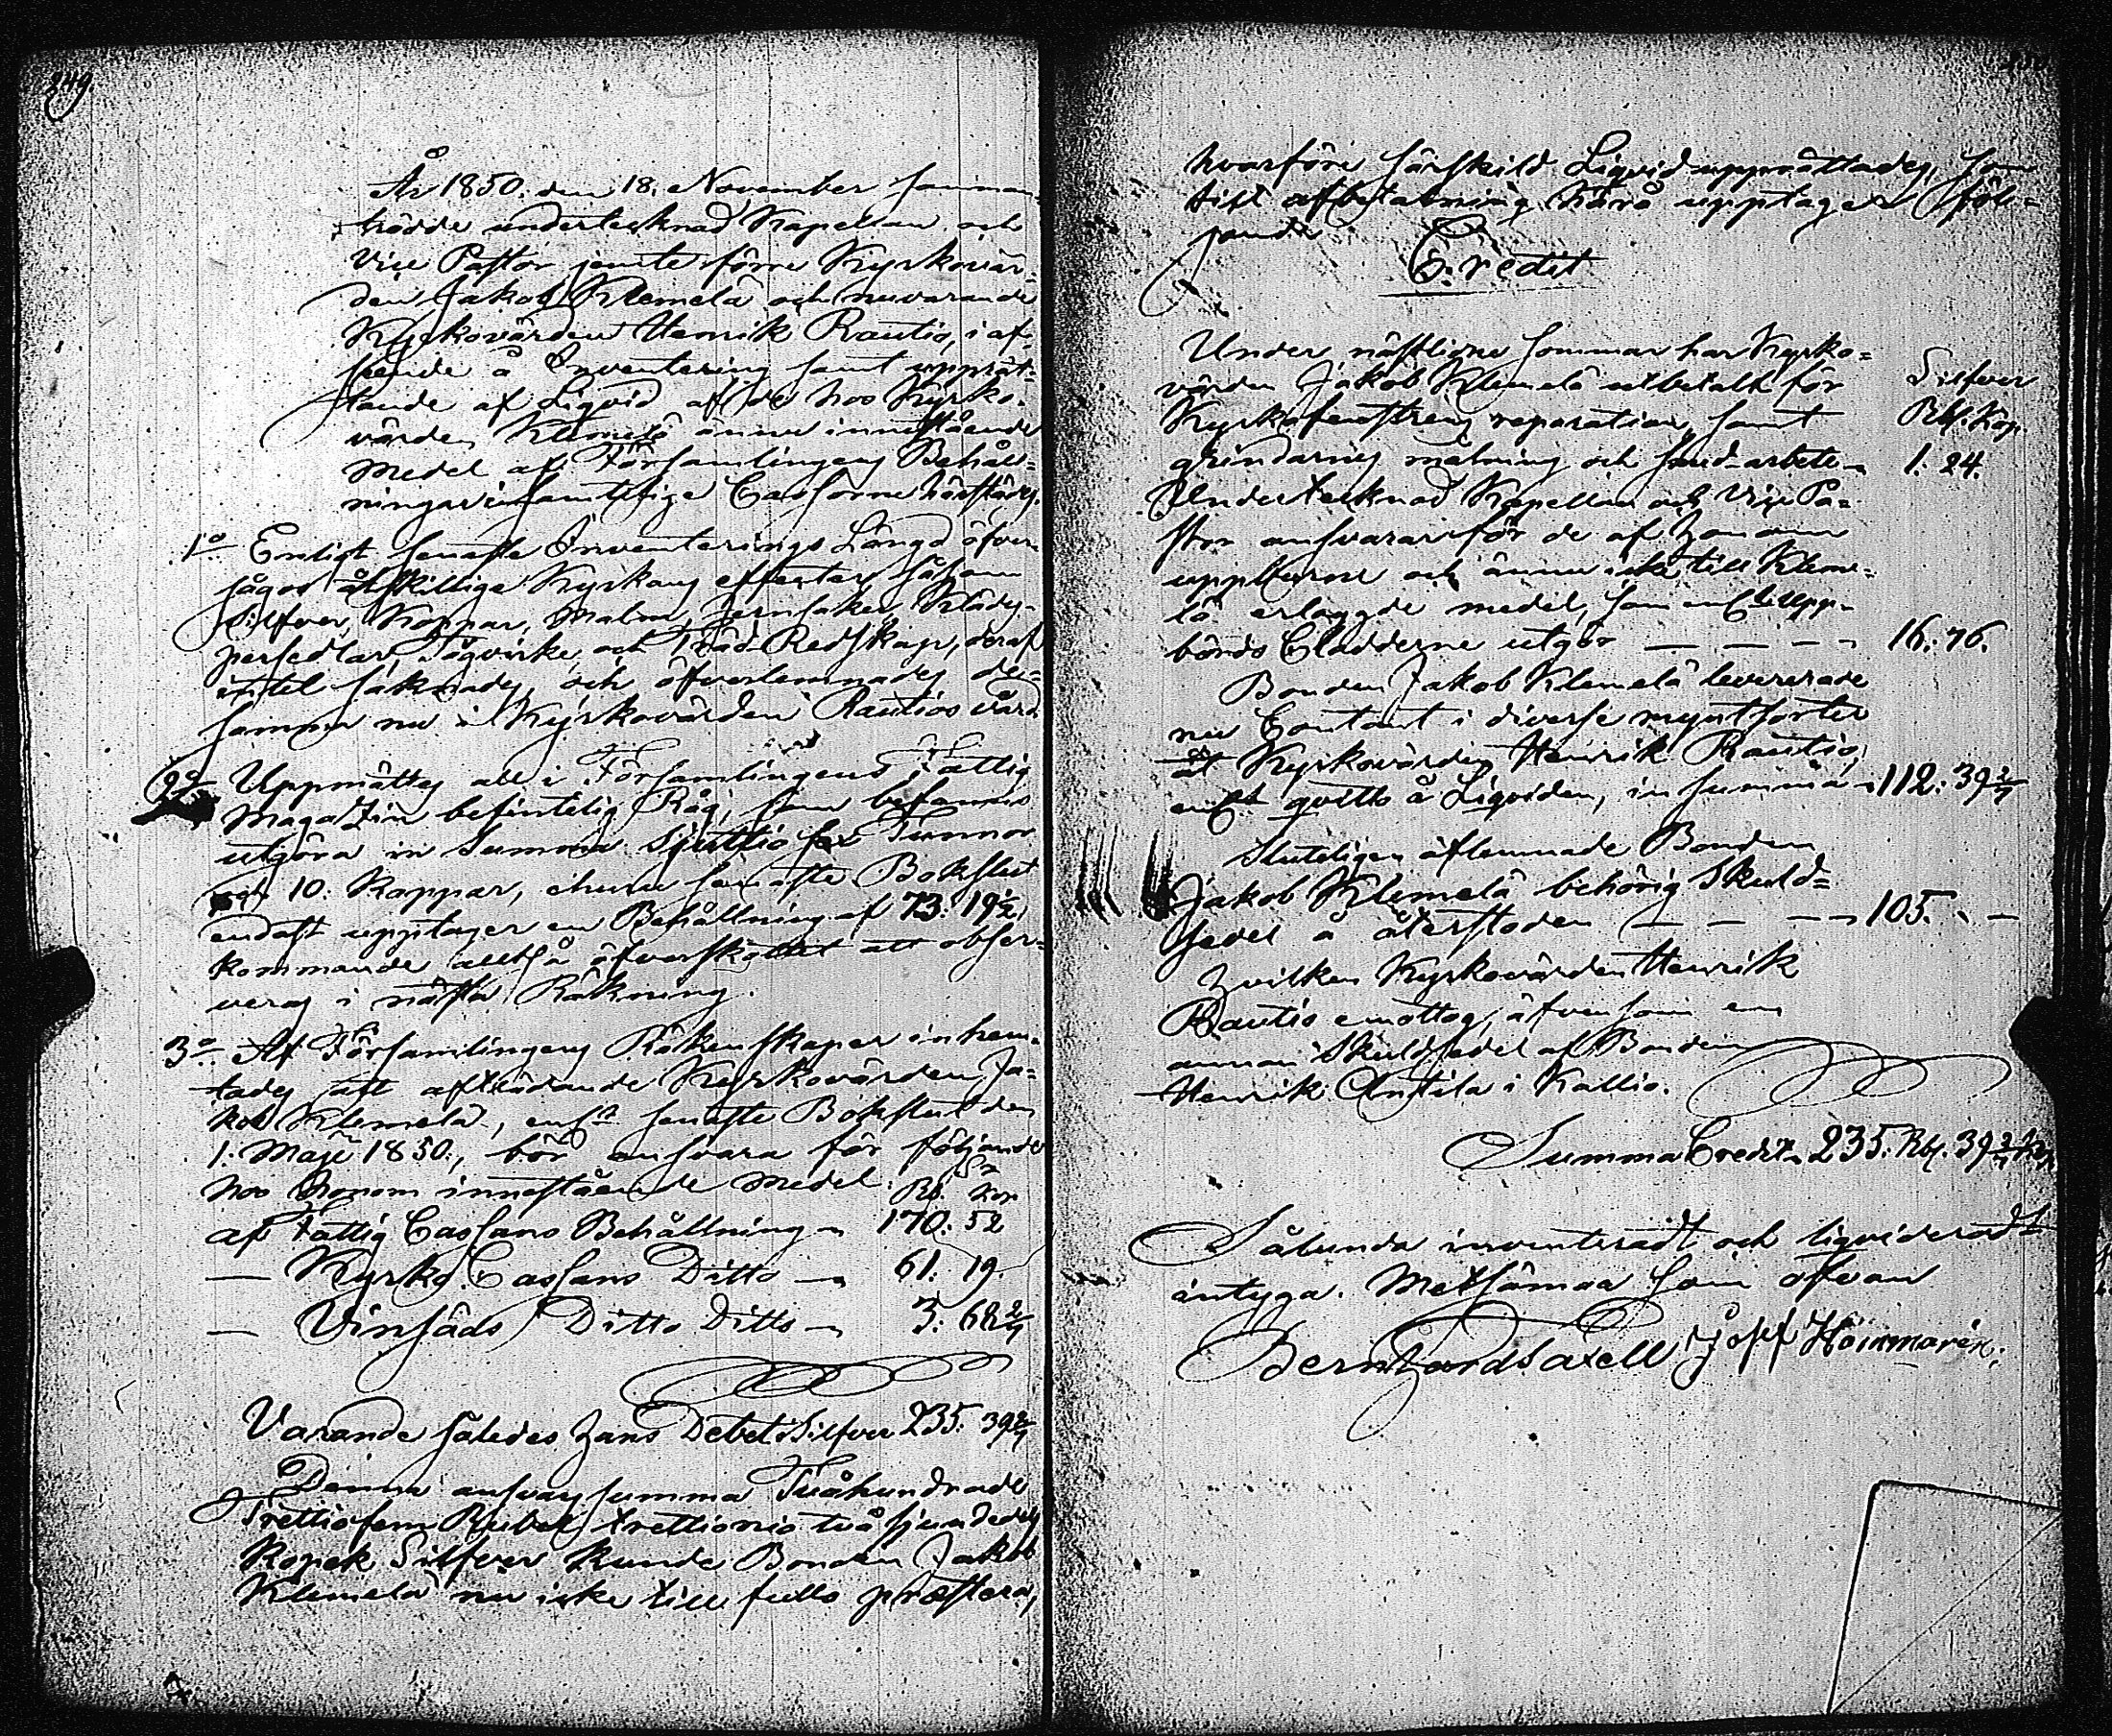 249.
År 1850. den 18. November samman-
trädde undertecknad Kapellan och
Vice Pastor jemte förre Kyrkovär-
den Jakob Klemelä och nuvarande
Kyrkovärden Henrik Rautio, i af-
seende å Inventering samt upprät-
tande af Liqvid af de hos Kyrko-
värden Klemelä ännu innestående
medel af Församlingens Behåll-
ningar i samtelige Cassorne härstädes.
1o Enligt senaste Inventerings Längd öfver-
sågos åtskillige Kyrkans effecter, såsom
Silfver, Koppar, Malm, Jernsaker, Klädes-
persedlar, Tågvirke och Träd-Redskap, deraf
intet saknades, och öfverlemnades de-
samma nu i Kyrkovärden Rautios vård.
2o Uppmättes all i Församlingens Fattig
Magazin befintelig Råg, som befanns
utgöra in Summa Sjuttio fem Tunnor
och 10. Kappar, ehuru senaste Bokslut
endast upptager en Behållning af 73. 19 1/2,
kommande alltså öfverskottet att obser-
veras i nästa Räkning.
3o Af Församlingens Räkenskaper inhem-
tades att afträdande Kyrkovärden Ja-
kob Klemelä, enl:t senaste Bokslut den
1. Maji 1850., bör ansvara för följande
hos honom innestående medel. Rb. Kop
af Fattig Cassans Behållning 170. 52
— Kyrko Cassans Ditto — 61. 19.
— Vinsäds Ditto Ditto — 3. 68 2/7
Varande således hans Debet Silfver 235. 39 2/7
Denna ansvars summa Tvåhundrade
Trettiofem Rubel trettionio två sjundedels
Kopek Silfver kunde Bonden Jakob
Klemelä nu icke till fullo præstera,
hvarföre särskild Liqvid upprättades, som
till afbetalning härå upptager föl-
jande
Credit
Under nästlidne sommar har Kyrko-
värden Jakob Klemelä utbetalt för
Silfver
Kyrkofenstrens reparation samt
Rbl. Kop.
grindarnes målning och smed-arbete 1. 24.
Undertecknad Kapellan och Vice Pa-
stor ansvarar för de af honom
uppburne och ännu icke till Kleme-
lä erlaggde medel, som enl:t Upp-
börds Cladderne utgör — — — 16. 76.
Bonden Jakob Klemelä levererade
nu Contant i diverse myntsorter
åt Kyrkovärden Henrik Rautio,
enl:t qvitto å Liqviden, in summa 112. 39 2/7
Sluteligen aflemnade Bonden
Jakob Klemelä behörig Skuld-
sedel å återstoden — — — 105. " —
Hvilken Kyrkovärden Henrik
Rautio emottog, äfvensom en
annan Skuldsedel af Bonden
Henrik Anttila i Kallio.
Summa Credit 235. Rbl. 39 2/7 Kop.
Sålunda inventeradt och liqvideradt
intyga. Metsämaa som ofvan
Bernhard Saxell Josef Hoinmarén.